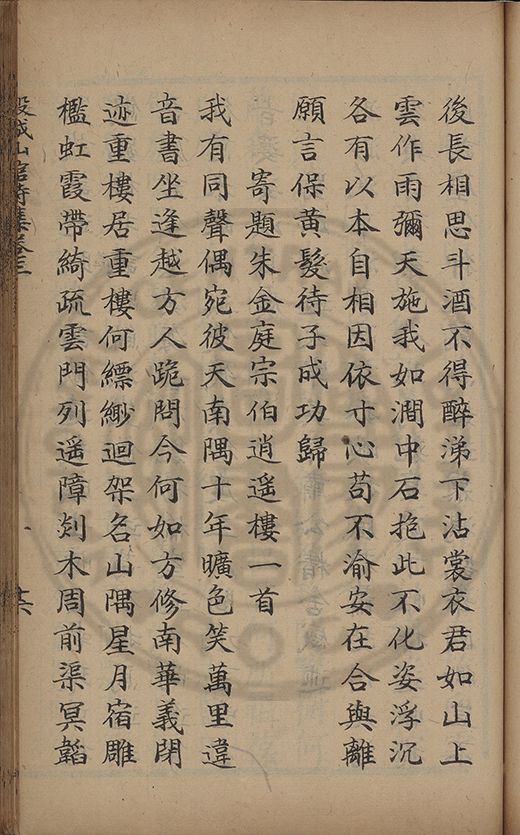 後長相思斗酒不得醉涕下沾裳衣君如山上
雲作雨彌天施我如澗中石抱此不化姿浮沉
各有以本自相因依寸心苟不渝安在合與離
願言保黃髮待子成功歸
寄題朱金庭宗伯逍遥樓一首
我有同聲偶宛彼天南隅十年曠色笑萬里違
音書坐逢越方人跪問今何如方修南華義閉
迹重樓居重樓何縹緲迴架名山隅星月宿雕
檻虹霞帶綺疏雲門列遥障剡木周前渠冥韜
穀城山館詩集卷三
廿六